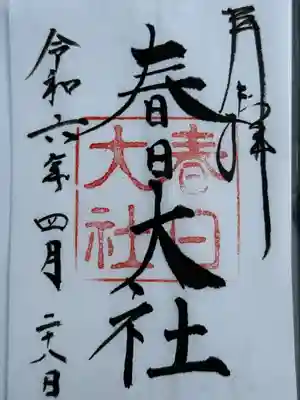 奉拝
春日大社
春日
大社
令和六年四月二十八日